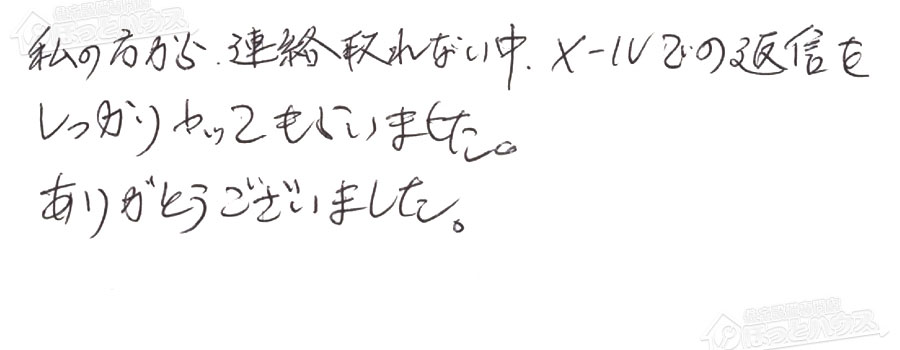 私の方から、連絡取れない中、メールでの返信を
しっかりやってもらいました。
ありがとうございました。
ほっとハウス